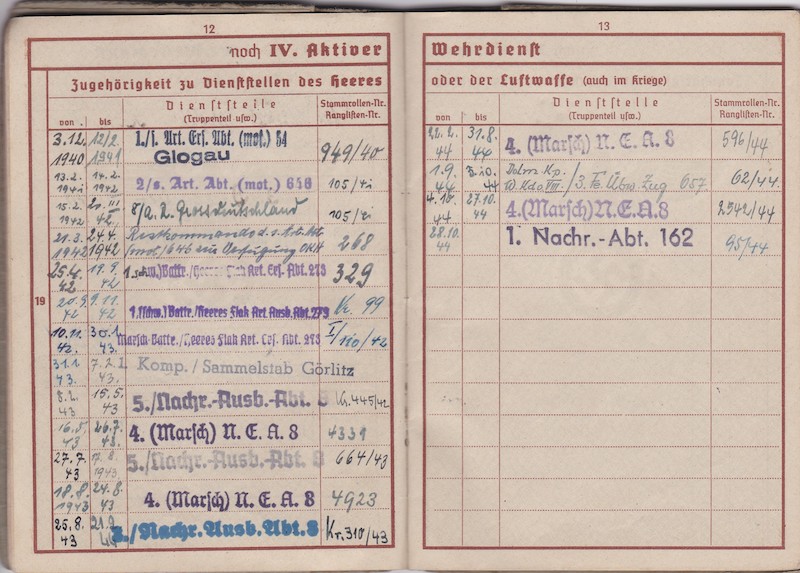 12
noch IV. Aktiver
Zugehörigkeit zu Dienststellen des Heeres
von bis Dienststelle (Truppenteil usw.) Stammrollen-Nr. Ranglisten-Nr.
19
3.12. 1940 12/2. 1941 1./s. Art. Ers. Abt. (mot.) 54 Glogau 949/40
13.2. 1941 14.2. 1942 2/s. Art. Abt. (mot.) 646 105/41
15.2. 1942 42 Grossdeutschland 105/41
21.3. 1942 24.4. 1942 Restkommando d. s. Art. Abt. (mot.) 646 zur Verfügung OKH 268
25.4. 42 19.9. 42 1.(schw.) Battr./Heeres Flak Art. Ers. Abt. 273 329
20.9. 42 9.11. 42 1.(schw.) Battr./Heeres Flak Art. Ausb. Abt. 273 Kr. 99
10.11. 42. 30.1. 43. Marsch-Battr./Heeres Flak Art. Ers. Abt. 273 I/110/42
31.1. 43. 7.2. 43. 1. Komp./Sammelstab Görlitz
8.2. 43 15.5. 43 5./Nachr.-Ausb.-Abt. 8 Kr. 445/42
16.5. 43 26.7. 43. 4. (Marsch) N. E. A. 8 4331
27.7. 43 17.8. 1943 5./Nachr.-Ausb.-Abt. 8 664/43
18.8. 1943 24.8. 43 4. (Marsch) N. E. A. 8 4923
25.8. 43 21.2. 44 3./Nachr. Ausb. Abt. 8 Kr. 310/43
13
Wehrdienst
oder der Luftwaffe (auch im Kriege)
von bis Dienststelle (Truppenteil usw.) Stammrollen-Nr. Ranglisten-Nr.
22.2. 44 31.8. 44 4. (Marsch) N. E. A. 8 596/44
1.9. 44 3.10. 44 Dolm. Kp. W. Kdo. VIII. / 3. Fe. Übw. Zug 657 62/44.
4.10. 44 27.10. 44 4. (Marsch) N. E. A. 8 2542/44
28.10. 44 1. Nachr.-Abt. 162 95/44